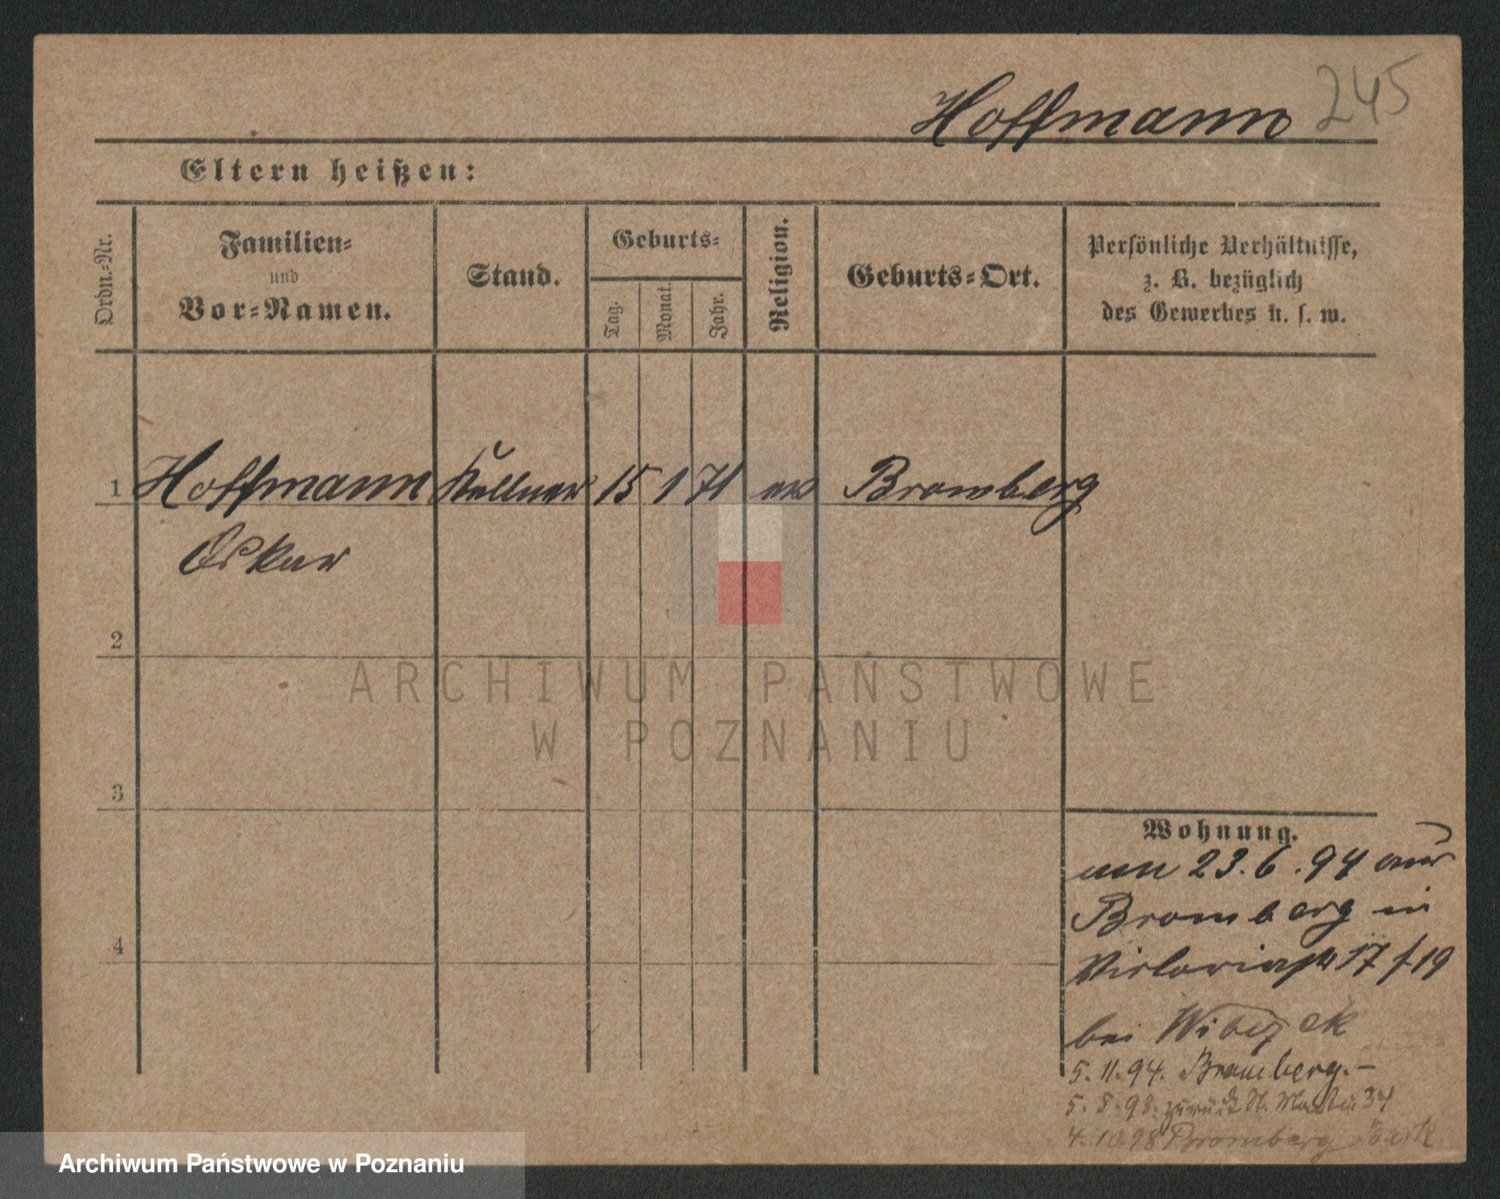 Hoffmann 245
Eltern heißen:
Ordn.=Nr.
Familien=
und
Vor=Namen.
Stand.
Geburts=
Tag.
Monat.
Jahr.
Religion.
Geburts=Ort.
Persönliche Verhältnisse,
z. B. bezüglich
des Gewerbes u. s. w.
1 Hoffmann Kellner 15 1 71 ev Bromberg
Oskar
2
ARCHIWUM PAŃSTWOWE
W POZNANIU
3
Wohnung.
am 23.6.94 aus
Bromberg in
4
Victoriastr 17 / 19
bei
5.11.94. Bromberg.—
5. 5. 98. zurück St. Martin 34
4.10.98 Bromberg
Archiwum Państwowe w Poznaniu